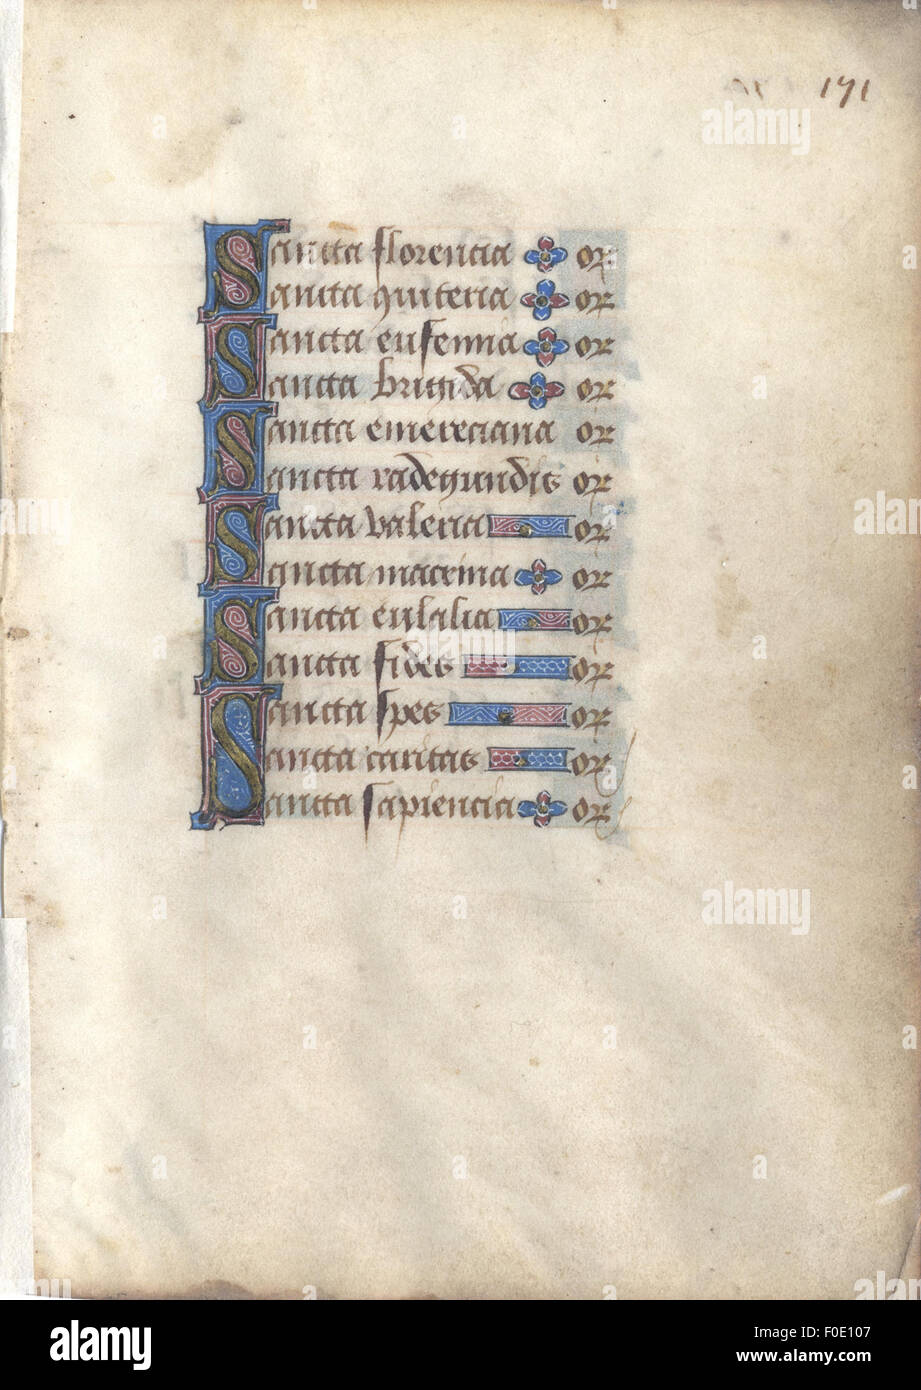 171
Sancta florencia or
Sancta quiteria or
Sancta eufemia or
Sancta brigida or
Sancta emereciana or
Sancta radegundis or
Sancta valeria or
Sancta macrina or
Sancta eulalia or
Sancta fides or
Sancta spes or
Sancta caritas or
Sancta sapiencia or
alamy stock photo
alamy
Image ID: F0E107
www.alamy.com